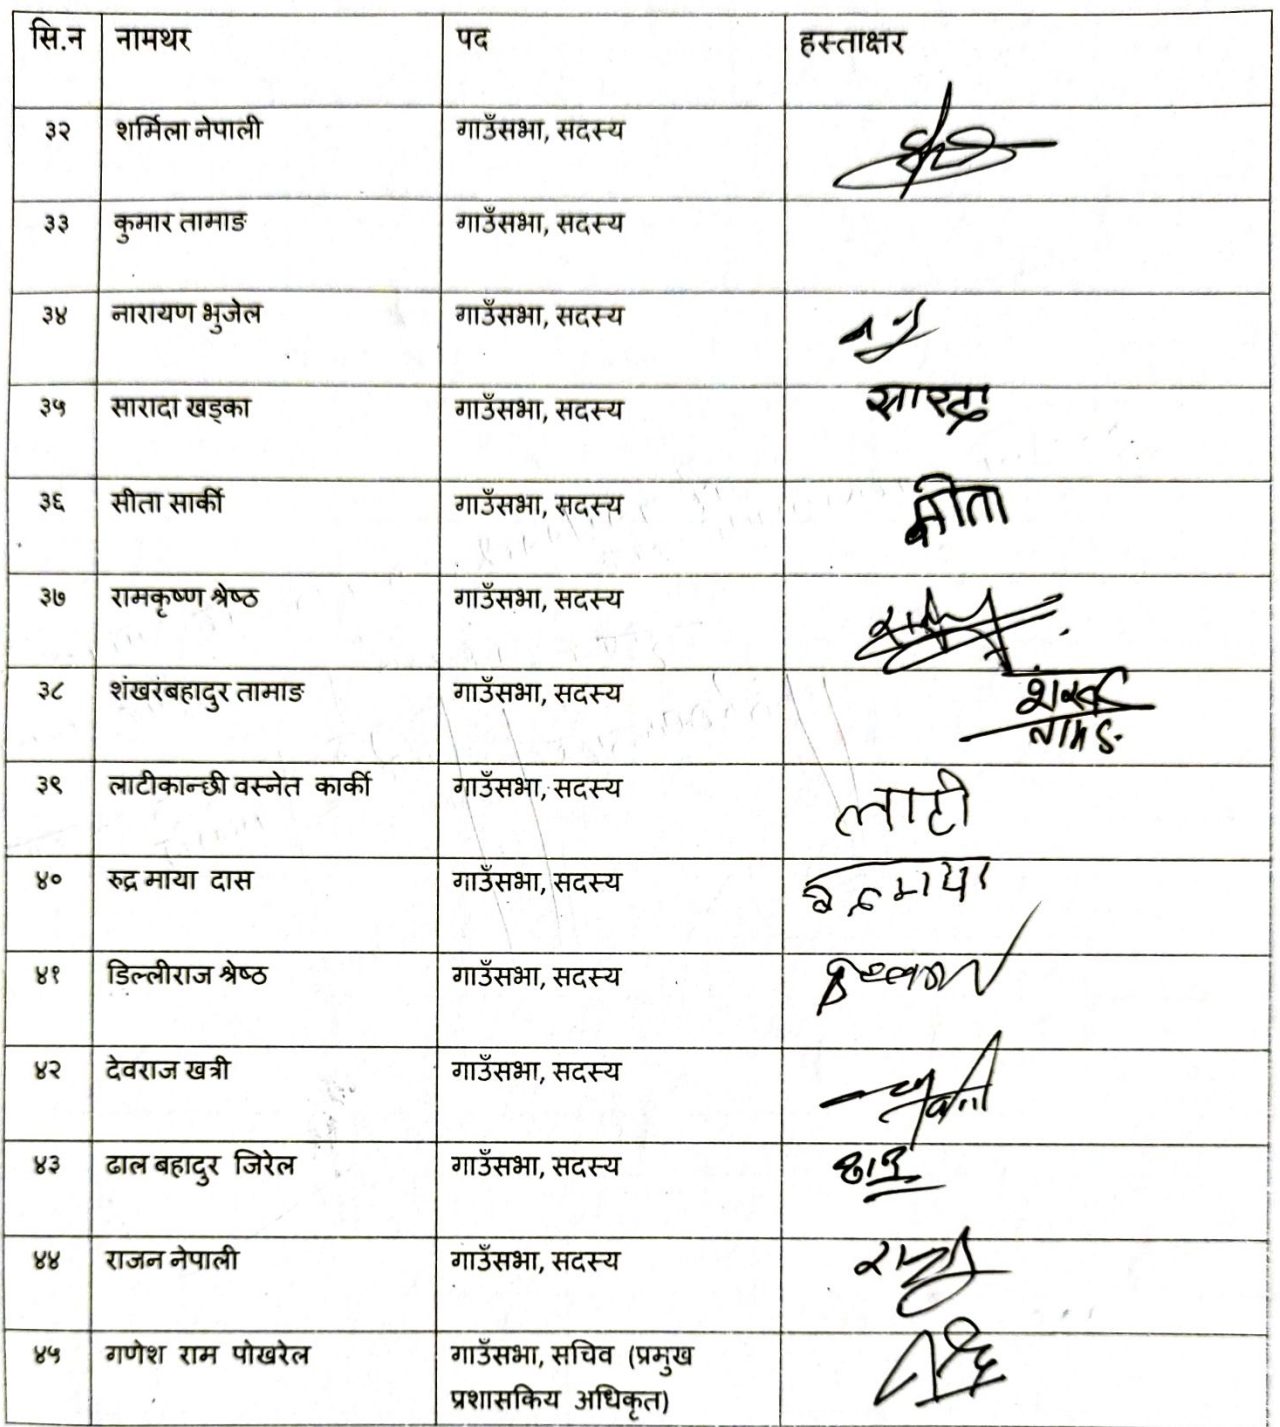 सि.न नामथर पद हस्ताक्षर
३२ शर्मिला नेपाली गाउँसभा, सदस्य
३३ कुमार तामाङ गाउँसभा, सदस्य
३४ नारायण भुजेल गाउँसभा, सदस्य
३५ सारादा खड्का गाउँसभा, सदस्य सारदा
३६ सीता सार्की गाउँसभा, सदस्य सीता
३७ रामकृष्ण श्रेष्ठ गाउँसभा, सदस्य
३८ शंखरंबहादुर तामाङ गाउँसभा, सदस्य
३९ लाटीकान्छी वस्नेत कार्की गाउँसभा, सदस्य लाटी
४० रुद्र माया दास गाउँसभा, सदस्य
४१ डिल्लीराज श्रेष्ठ गाउँसभा, सदस्य
४२ देवराज खत्री गाउँसभा, सदस्य
४३ ढाल बहादुर जिरेल गाउँसभा, सदस्य
४४ राजन नेपाली गाउँसभा, सदस्य
४५ गणेश राम पोखरेल गाउँसभा, सचिव (प्रमुख
प्रशासकिय अधिकृत)